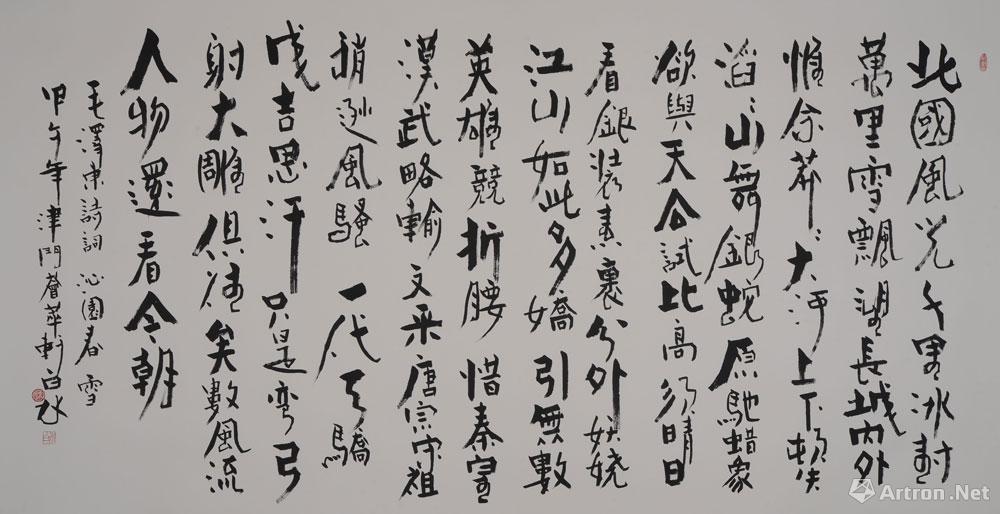 北國風光千里冰封
萬里雪飄望長城內外
惟余莽〻大河上下頓失
滔〻山舞銀蛇原馳蜡象
欲與天公試比高須晴日
看銀裝素裹分外妖娆
江山如此多嬌引無數
英雄競折腰惜秦皇
漢武略輸文采唐宗宋祖
稍遜風騷一代天驕
成吉思汗只是弯弓
射大雕俱往矣數風流
人物還看今朝
毛澤東詩詞 沁園春 雪
甲午年津門薈萃軒白
Artron.Net